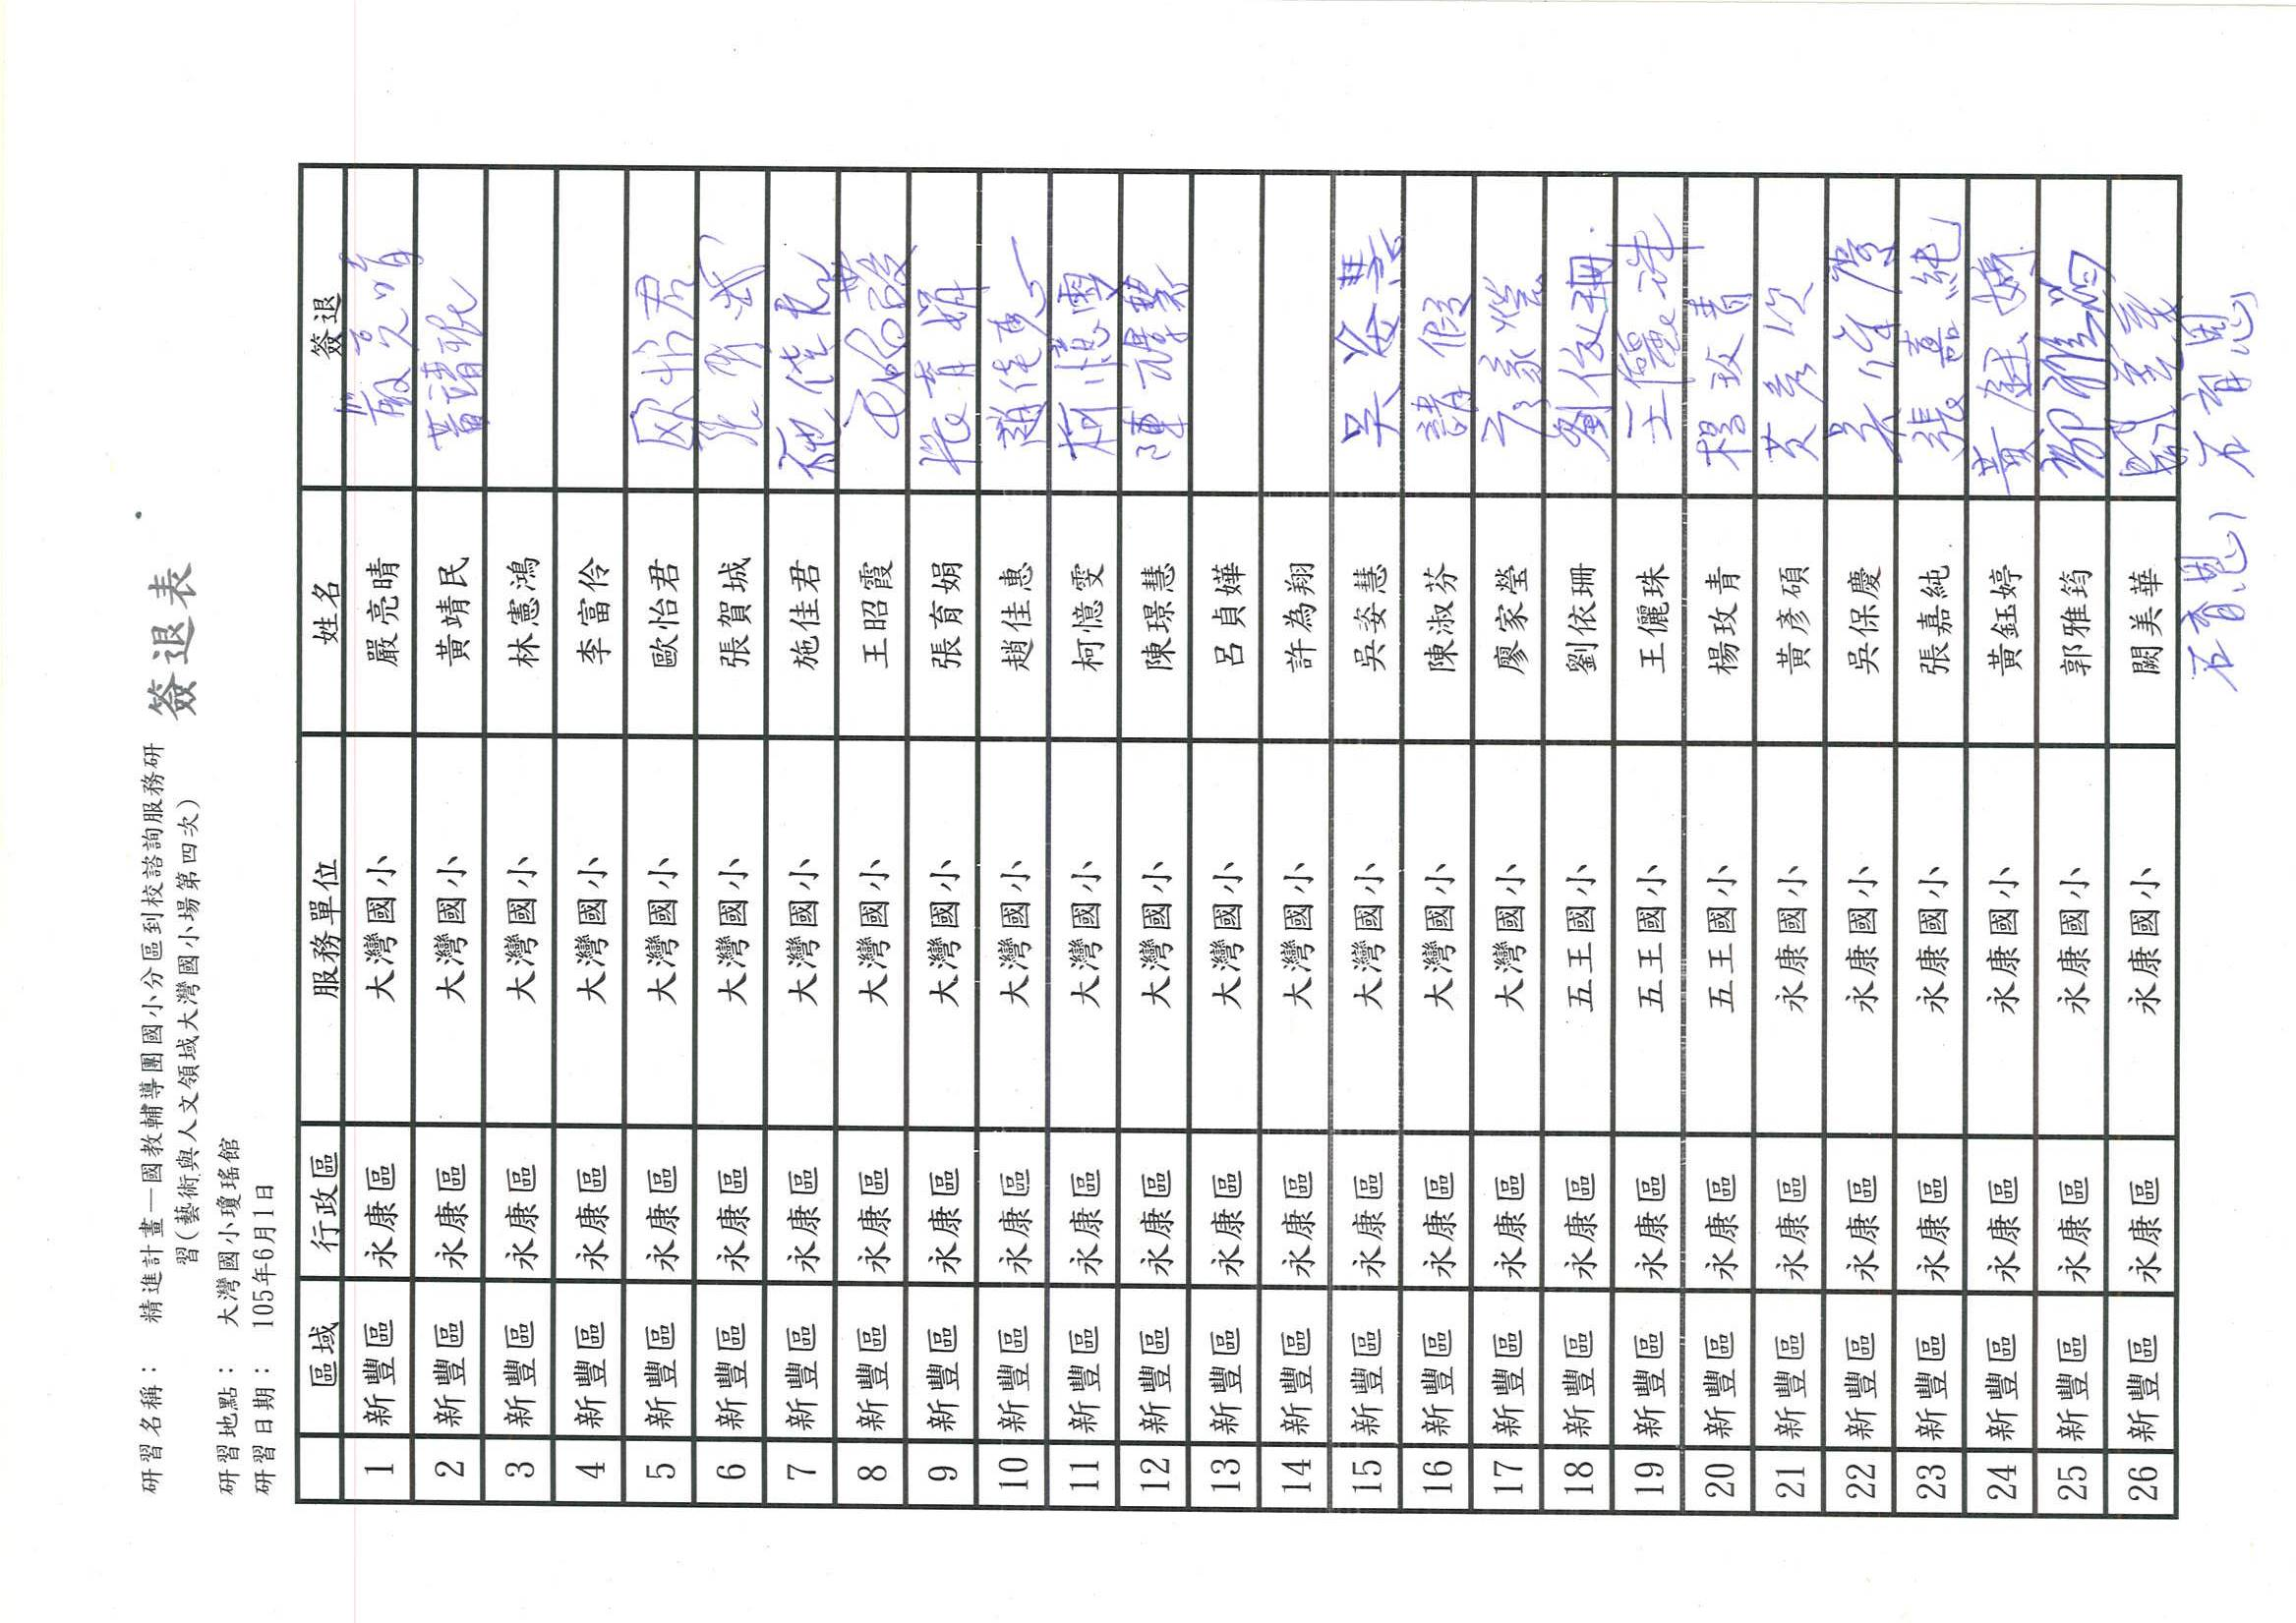 研習名稱： 精進計畫—國教輔導團國小分區到校諮詢服務研
習(藝術與人文領域大灣國小場第四次) 簽退表
研習地點： 大灣國小瓊瑤館
研習日期： 105年6月1日
區域 行政區 服務單位 姓名 簽退
1 新豐區 永康區 大灣國小 嚴亮晴 嚴亮晴
2 新豐區 永康區 大灣國小 黃靖民 黃靖民
3 新豐區 永康區 大灣國小 林憲鴻
4 新豐區 永康區 大灣國小 李富伶
5 新豐區 永康區 大灣國小 歐怡君 欧怡君
6 新豐區 永康區 大灣國小 張賀城
7 新豐區 永康區 大灣國小 施佳君 施佳君
8 新豐區 永康區 大灣國小 王昭霞 王昭霞
9 新豐區 永康區 大灣國小 張育娟 張育娟
10 新豐區 永康區 大灣國小 趙佳惠 趙佳惠
11 新豐區 永康區 大灣國小 柯憶雯 柯憶雯
12 新豐區 永康區 大灣國小 陳璟慧 陳璟慧
13 新豐區 永康區 大灣國小 呂貞嬅
14 新豐區 永康區 大灣國小 許為翔
15 新豐區 永康區 大灣國小 吳姿慧 吳姿慧
16 新豐區 永康區 大灣國小 陳淑芬 請假
17 新豐區 永康區 大灣國小 廖家瑩 廖家瑩
18 新豐區 永康區 五王國小 劉依珊 劉依珊
19 新豐區 永康區 五王國小 王儷珠 王儷珠
20 新豐區 永康區 五王國小 楊玫青 楊玫青
21 新豐區 永康區 永康國小 黃彥碩
22 新豐區 永康區 永康國小 吳保慶 吳保慶
23 新豐區 永康區 永康國小 張嘉純 張嘉純
24 新豐區 永康區 永康國小 黃鈺婷 黃鈺婷
25 新豐區 永康區 永康國小 郭雅筠 郭雅筠
26 新豐區 永康區 永康國小 闕美華
石育恩 石育恩